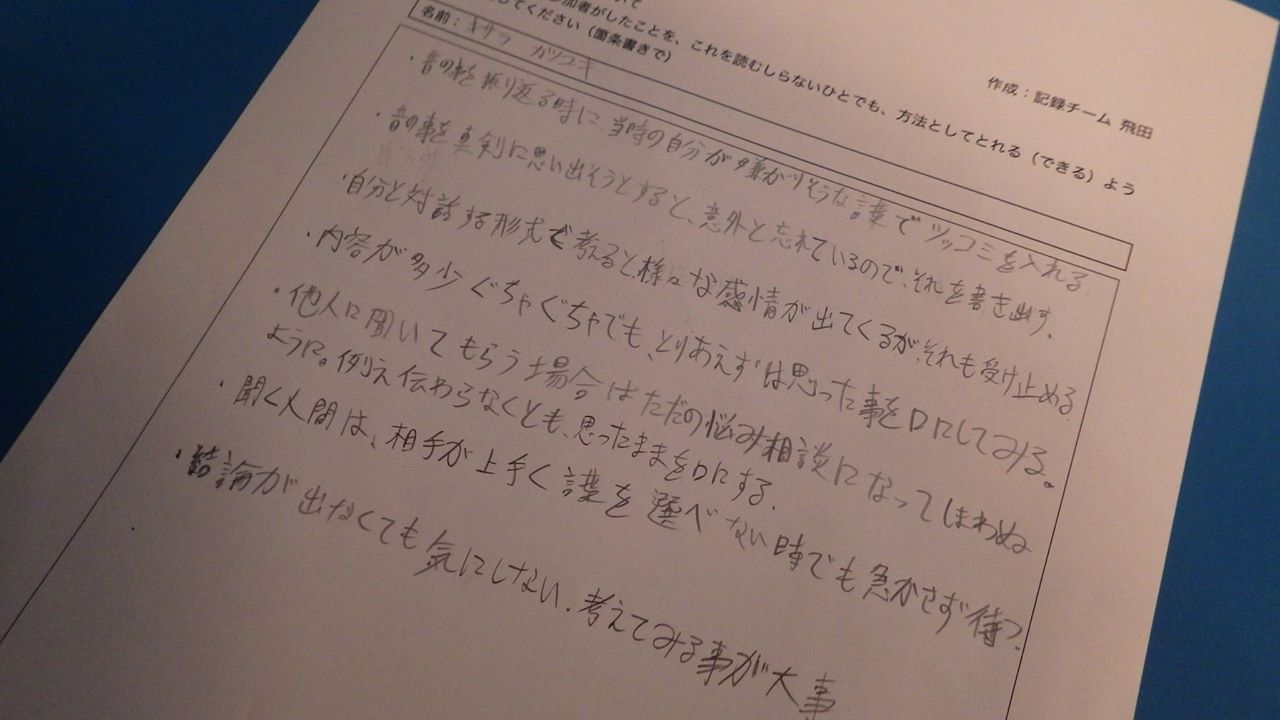 いて
加者がしたことを、これを読むしらないひとでも、方法としてとれる（できる）よう
してください（箇条書きで）
作成：記録チーム 飛田
名前：キサラ カツユキ
・昔の事を振り返る時に、当時の自分が嫌がりそうな言葉でツッコミを入れる
・昔の事を真剣に思い出そうとすると、意外と忘れているので、それを書き出す.
・自分と対話する形式で考えると、様々な感情が出てくるが、それも受け止める
・内容が多少ぐちゃぐちゃでも、とりあえずは思った事を口にしてみる。
・他人に聞いてもらう場合はただの悩み相談になってしまわぬ
ように。例え伝わらなくとも、思ったままを口にする.
・聞く人間は、相手が上手く言葉を選べない時でも急かさず待つ.
・結論が出なくても気にしない. 考えてみる事が大事